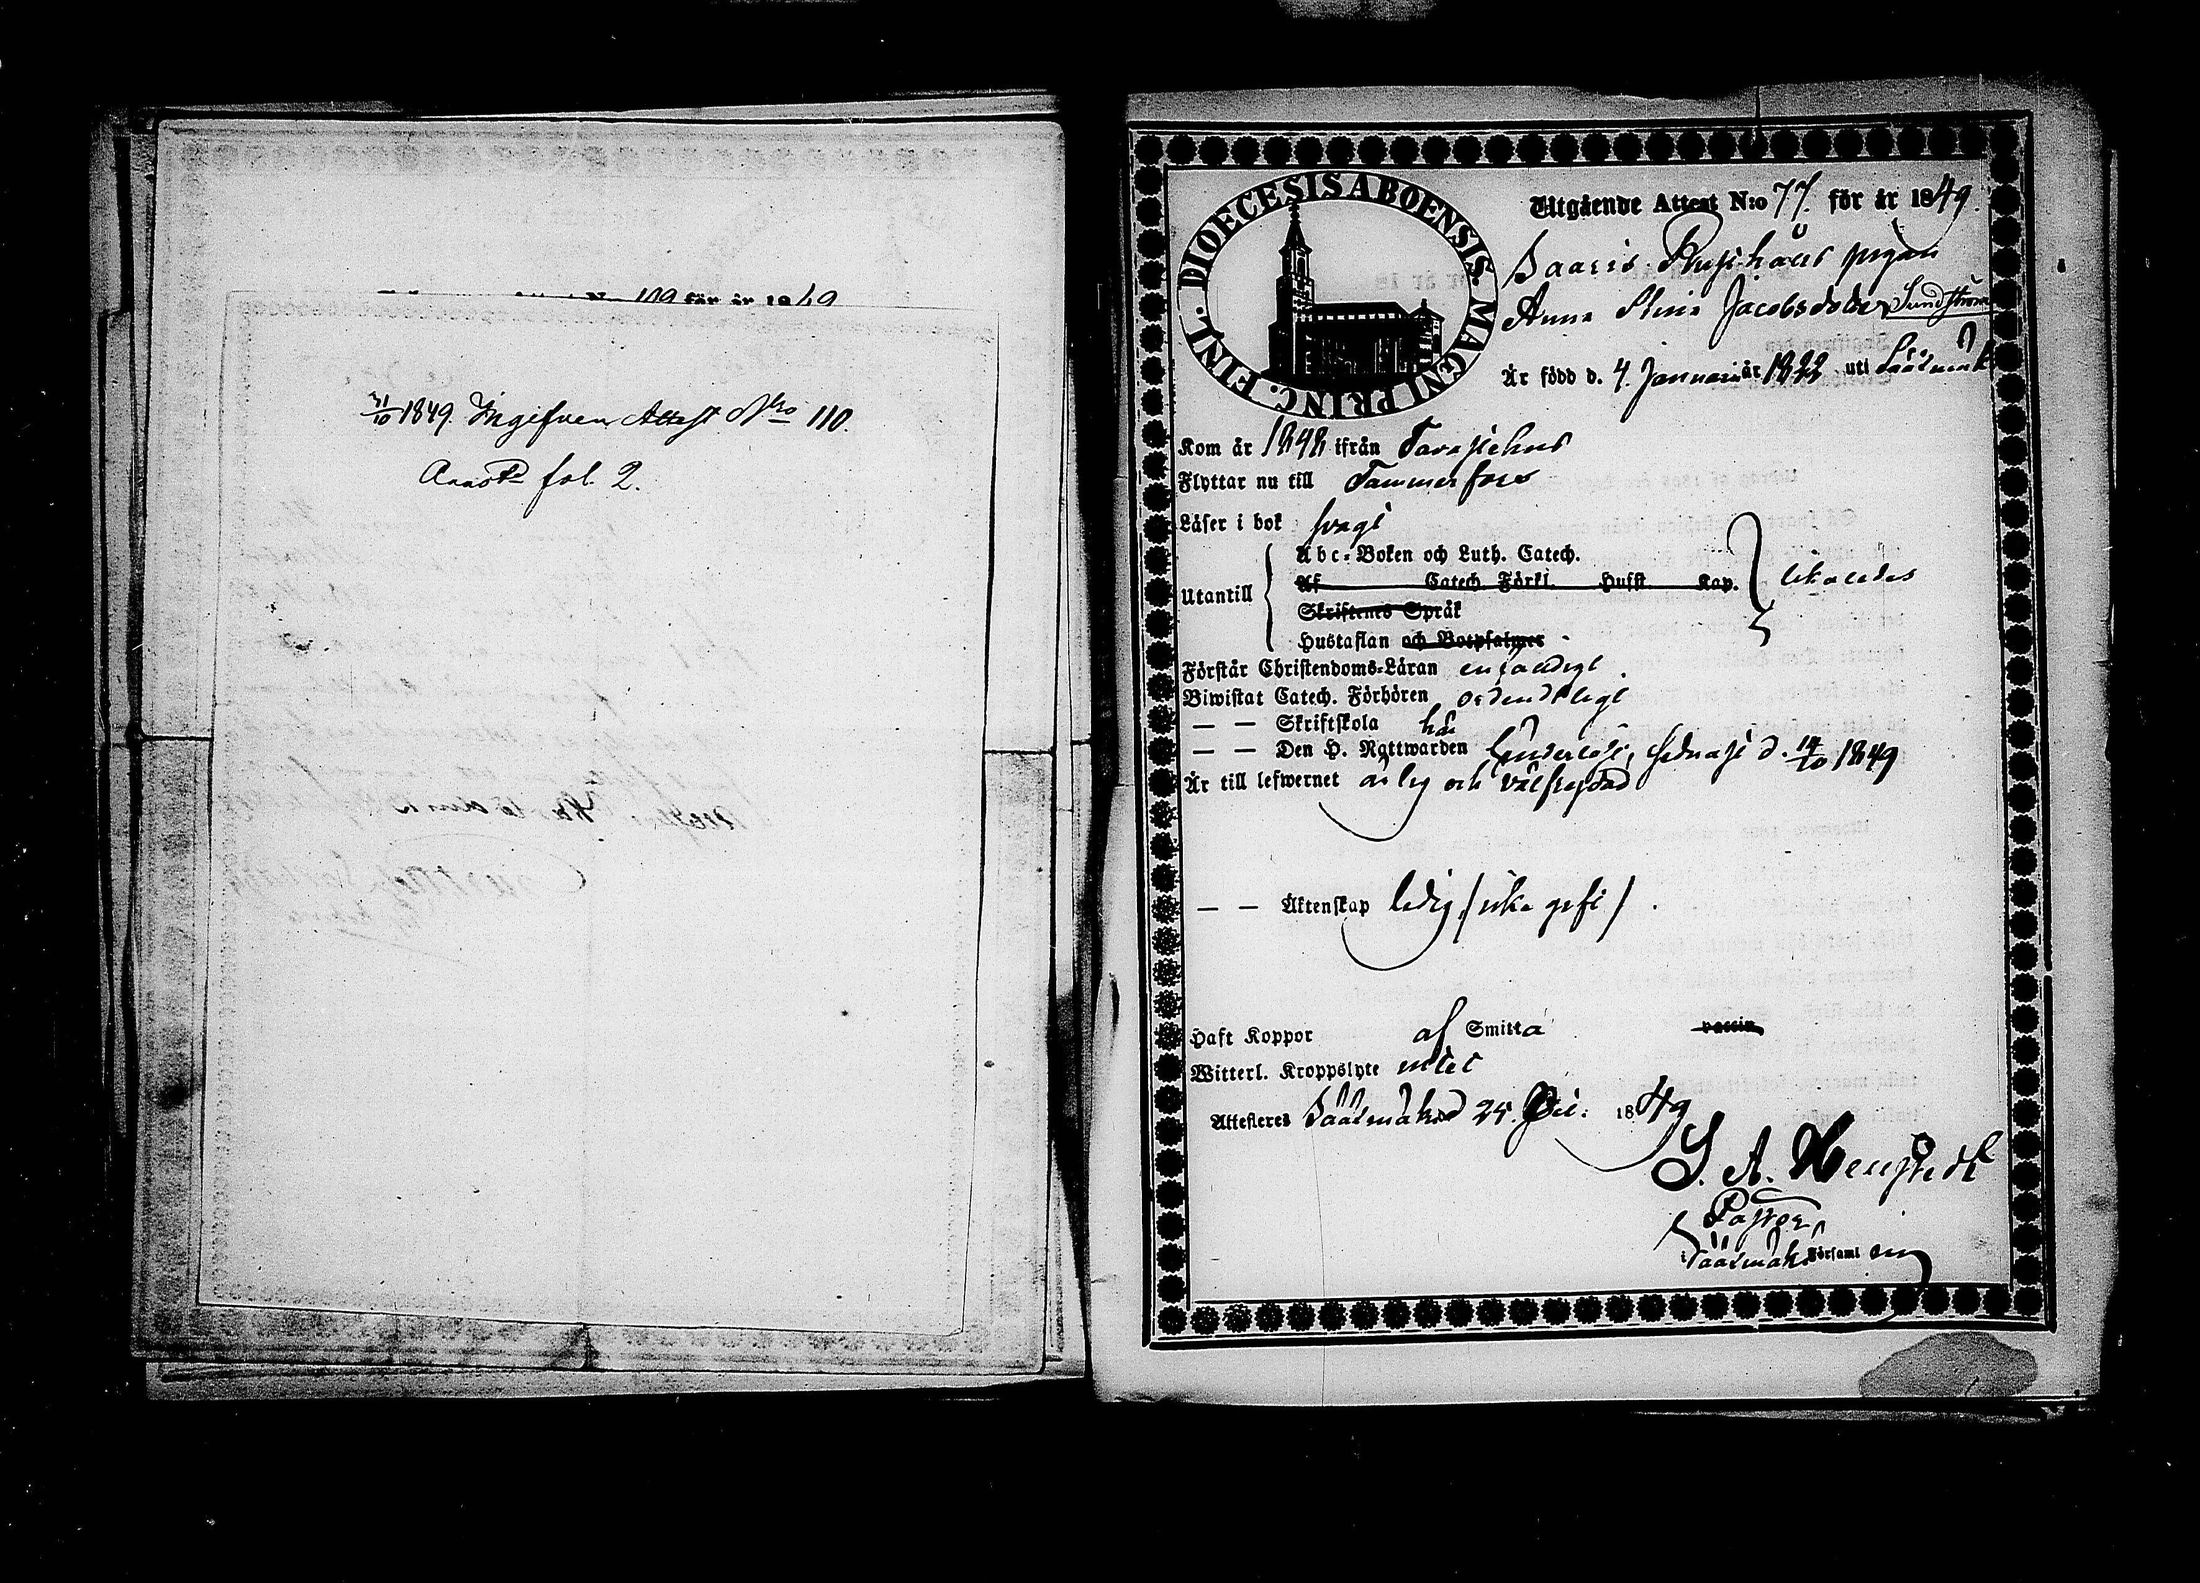 109 för år 1849
31/10 1849. Ingifven Attest Nro 110.
fol. 2.
DIOECESIS ABOENSIS. MAGNI PRINC. FINL.
Utgående Attest N:o 77. för år 1849.
Saaris pigan
Anna Stina Jacobsdotter Sundström
Är född d. 4 Januarii år 1822 uti Sääxmäki
Kom år 1848 ifrån Tavastehus
Flyttar nu till Tammerfors
Läser i bok svagt
Utantill
Abc-Boken och Luth. Catech.
Af Catech. Förkl. Hufst. Kap.
Skriftenes Språk
Hustaflan och Botpsalmer
likaledes
Förstår Christendoms-Läran enfaldigt.
Biwistat Catech. Förhören ordentligt
— — Skriftskola här
— — Den H. Nattwarden sednast d. 14/10 1849
Är till lefwernet ärlig och välfrejdad
— — Äktenskap ledig /icke gift/.
Haft Koppor af Smitta vaccin
Witterl. Kroppslyte intet
Attesteras Sääxmäki d 25 1849
S. A.
Pastor
i Sääxmäki Församl en